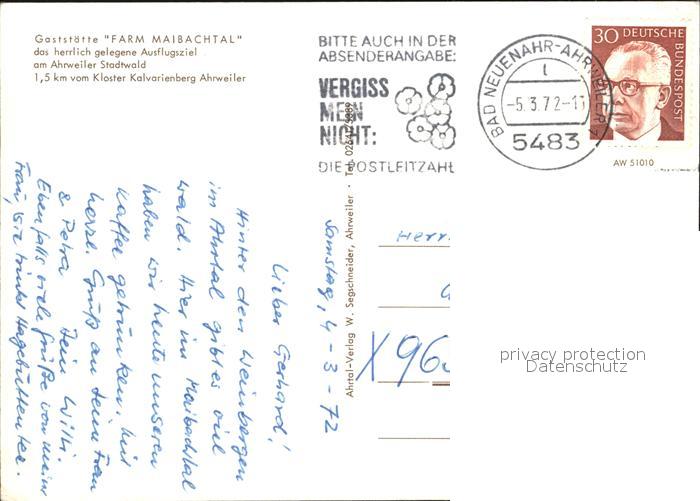 Gaststätte "FARM MAIBACHTAL"
das herrlich gelegene Ausflugsziel
am Ahrweiler Stadtwald
1,5 km vom Kloster Kalvarienberg Ahrweiler
BITTE AUCH IN DER
ABSENDERANGABE:
VERGISS
MEIN
NICHT:
DIE POSTLEITZAHL
BAD NEUENAHR-AHRWEILER 1
t
-5.3.72-11
5483
30 DEUTSCHE
BUNDESPOST
AW 51010
Ahrtal-Verlag W. Segschneider, Ahrweiler · Tel.
Samstag, 4-3-72
Lieber Gerhard!
Hinter den Weinbergen
im Ahrtal gibt es viel
Wald. Hier im Maibachtal
haben wir heute unseren
Kaffee getrunken. Mit
herzl. Gruß an deine Frau
& Petra Dein Willi.
Ebenfalls viele Grüße von meiner
Frau, sie trinkt Hagebuttentee.
Herr
X 96
privacy protection
Datenschutz